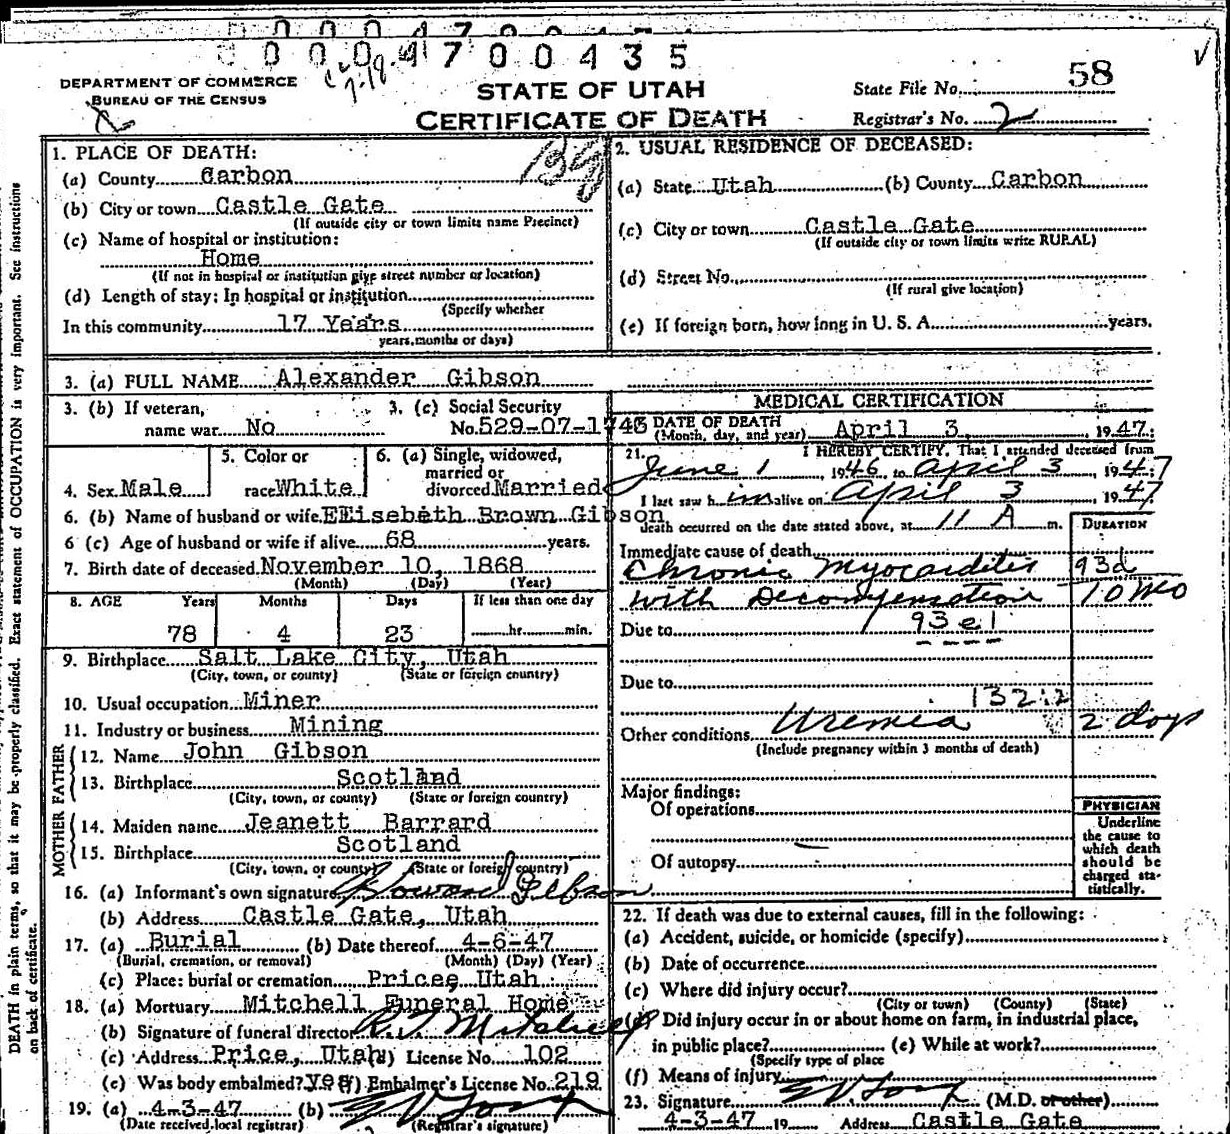 0004700435
DEPARTMENT OF COMMERCE
BUREAU OF THE CENSUS
STATE OF UTAH
CERTIFICATE OF DEATH
State File No. 58
Registrar's No. 2
1. PLACE OF DEATH:
(a) County Carbon
(b) City or town Castle Gate
(If outside city or town limits name Precinct)
(c) Name of hospital or institution:
Home
(If not in hospital or institution give street number or location)
(d) Length of stay: In hospital or institution
(Specify whether
In this community 17 Years
years, months or days)
2. USUAL RESIDENCE OF DECEASED:
(a) State Utah (b) County Carbon
(c) City or town Castle Gate
(If outside city or town limits write RURAL)
(d) Street No.
(If rural give location)
(e) If foreign born, how long in U. S. A. years.
3. (a) FULL NAME Alexander Gibson
3. (b) If veteran,
name war No
3. (c) Social Security
No. 529-07-1746
4. Sex Male
5. Color or
race White
6. (a) Single, widowed,
married or
divorced Married
6. (b) Name of husband or wife Elisebeth Brown Gibson
6 (c) Age of husband or wife if alive 68 years.
7. Birth date of deceased November 10, 1868
(Month) (Day) (Year)
8. AGE Years Months Days If less than one day
78 4 23 hr. min.
9. Birthplace Salt Lake City, Utah
(City, town, or county) (State or foreign country)
10. Usual occupation Miner
11. Industry or business Mining
FATHER
12. Name John Gibson
13. Birthplace Scotland
(City, town, or county) (State or foreign country)
MOTHER
14. Maiden name Jeanett Barrard
15. Birthplace Scotland
(City, town, or county) (State or foreign country)
16. (a) Informant's own signature Howard Gibson
(b) Address Castle Gate, Utah
17. (a) Burial (b) Date thereof 4-6-47
(Burial, cremation, or removal) (Month) (Day) (Year)
(c) Place: burial or cremation Price, Utah
18. (a) Mortuary Mitchell Funeral Home
(b) Signature of funeral director Mitchell
(c) Address Price, Utah (d) License No. 102
(e) Was body embalmed? yes (f) Embalmer's License No. 219
19. (a) 4-3-47 (b)
(Date received local registrar) (Registrar's signature)
MEDICAL CERTIFICATION
DATE OF DEATH
(Month, day, and year) April 3, 1947
21. I HEREBY CERTIFY, That I attended deceased from
June 1 1946 to April 3, 1947
I last saw him alive on April 3 1947
death occurred on the date stated above, at 11 A m.
DURATION
Immediate cause of death
Chronic Myocarditis 93d
with Decompensation 10 mo
Due to 93e1
Due to
132:2
Other conditions Uremia 2 days
(Include pregnancy within 3 months of death)
Major findings:
Of operations
Of autopsy
PHYSICIAN
Underline
the cause to
which death
should be
charged sta-
tistically.
22. If death was due to external causes, fill in the following:
(a) Accident, suicide, or homicide (specify)
(b) Date of occurrence
(c) Where did injury occur?
(City or town) (County) (State)
Did injury occur in or about home on farm, in industrial place,
in public place? (e) While at work?
(Specify type of place
(f) Means of injury
23. Signature (M.D. or other)
4-3-47 19 Address Castle Gate
DEATH in plain terms, so that it may be properly classified. Exact statement of OCCUPATION is very important. See instructions
on back of certificate.